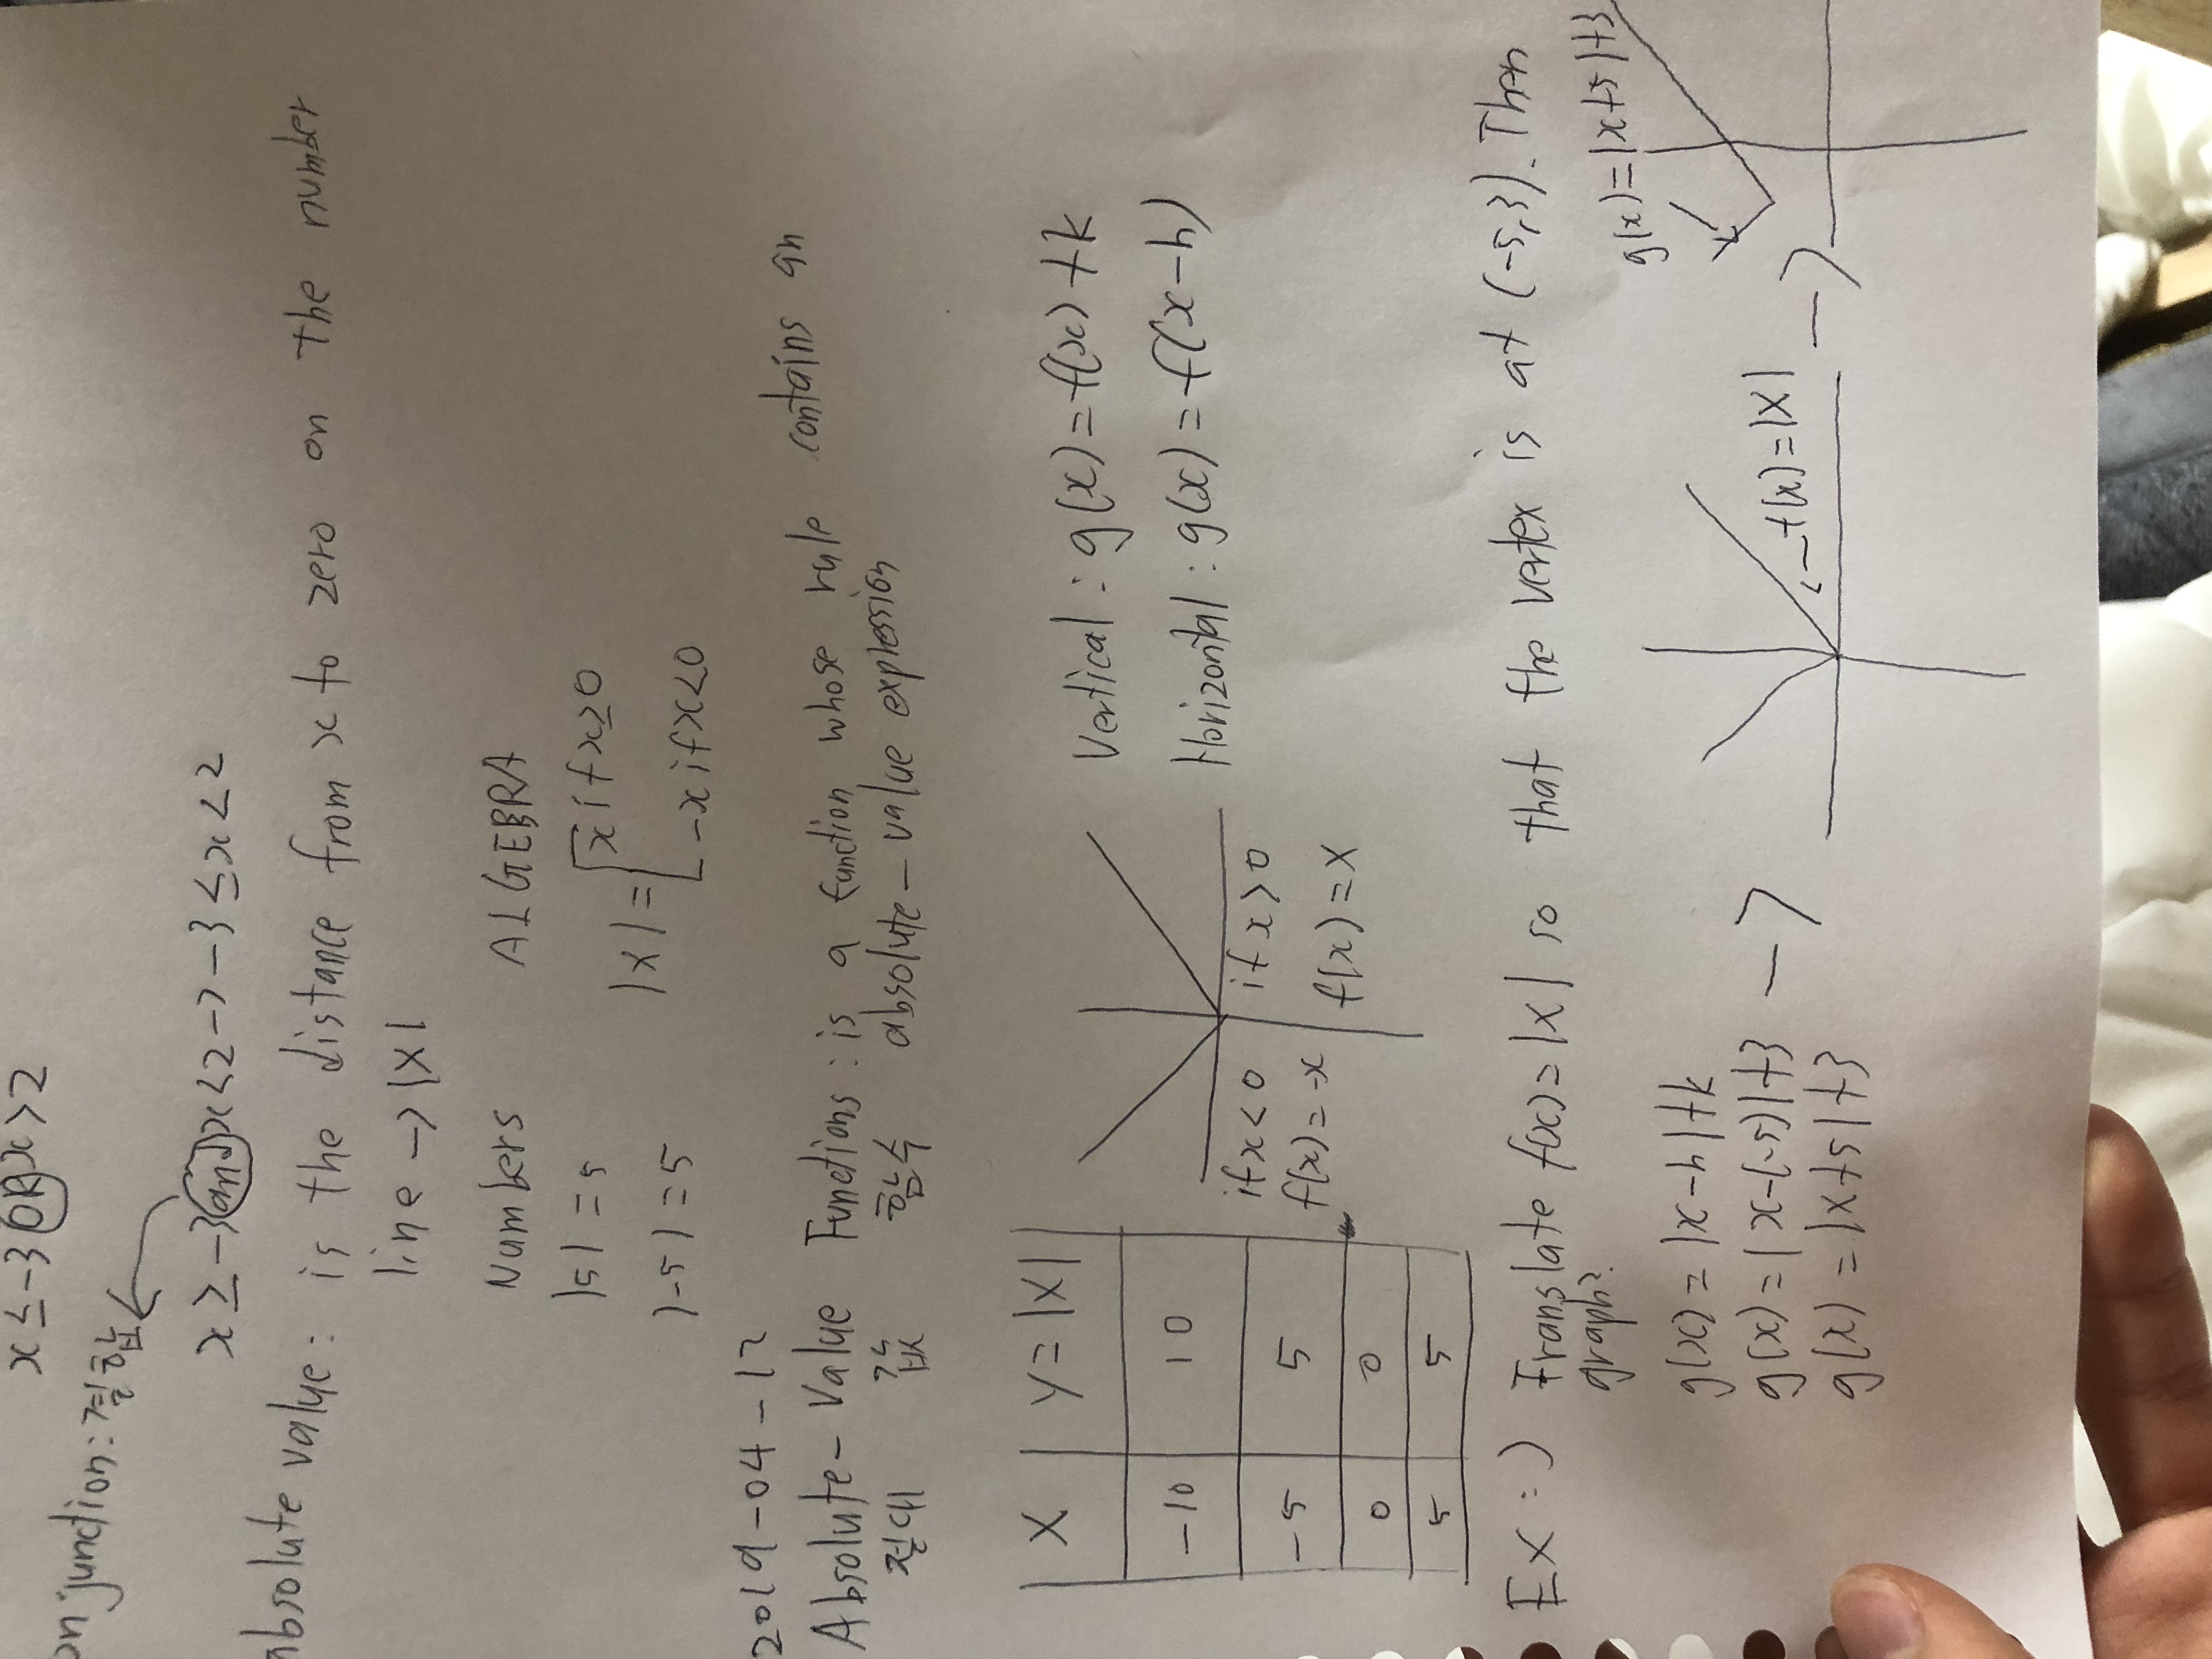 x ≤ -3 OR x > 2
onjunction: 결합
x ≥ -3 and x < 2 -> -3 ≤ x < 2
absolute value: is the distance from x to zero on the number
line -> |x|
Numbers ALGEBRA
|5| = 5 |x| = [x if x ≥ 0
|-5| = 5 -x if x < 0
2019-04-17
Absolute-Value Functions: is a function whose rule contains an
절대 값 함수 absolute-value expression
X Y=|X|
-10 10
-5 5
0 0
5 5
if x < 0 if x > 0
f(x) = -x f(x) = x
Vertical : g(x) = f(x) + k
Horizontal : g(x) = f(x-h)
EX:) Translate f(x) = |x| so that the vertex is at (-5, 3). Then
graph.
g(x) = |x-h| + k
g(x) = |x-(-5)| + 3 ->
g(x) = |x+5| + 3
<- f(x) = |x| ->
g(x) = |x+5| + 3